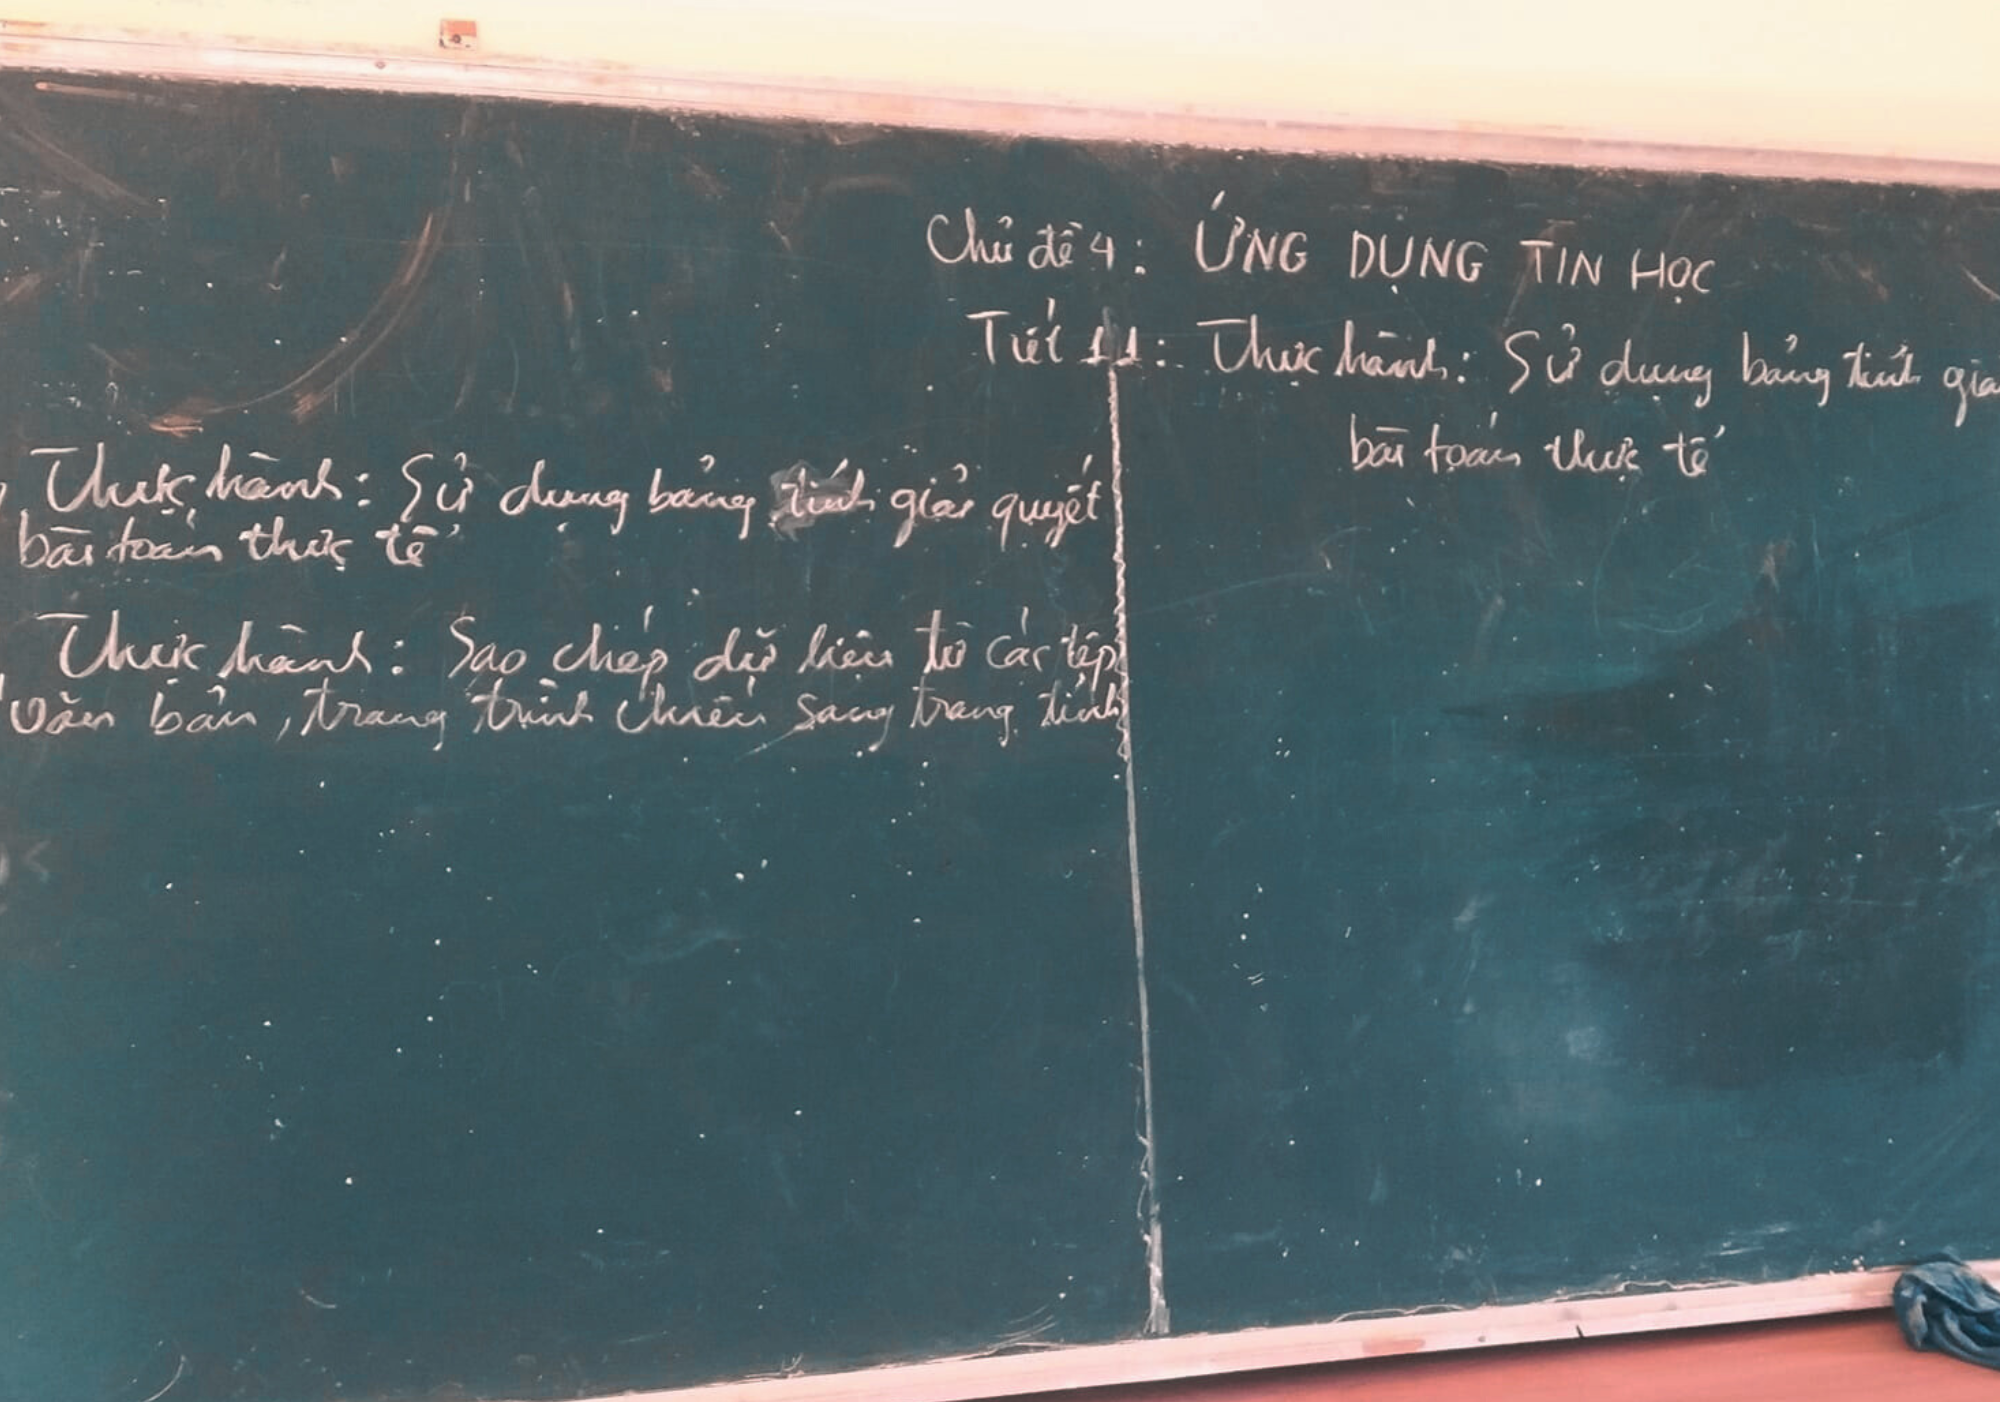 Chủ đề 4: ỨNG DỤNG TIN HỌC
Tiết 11: Thực hành: Sử dụng bảng tính giả
bài toán thực tế
Thực hành: Sử dụng bảng tính giải quyết
bài toán thực tế
Thực hành: Sao chép dữ liệu từ các tệp
văn bản, trang trình chiếu sang trang tính